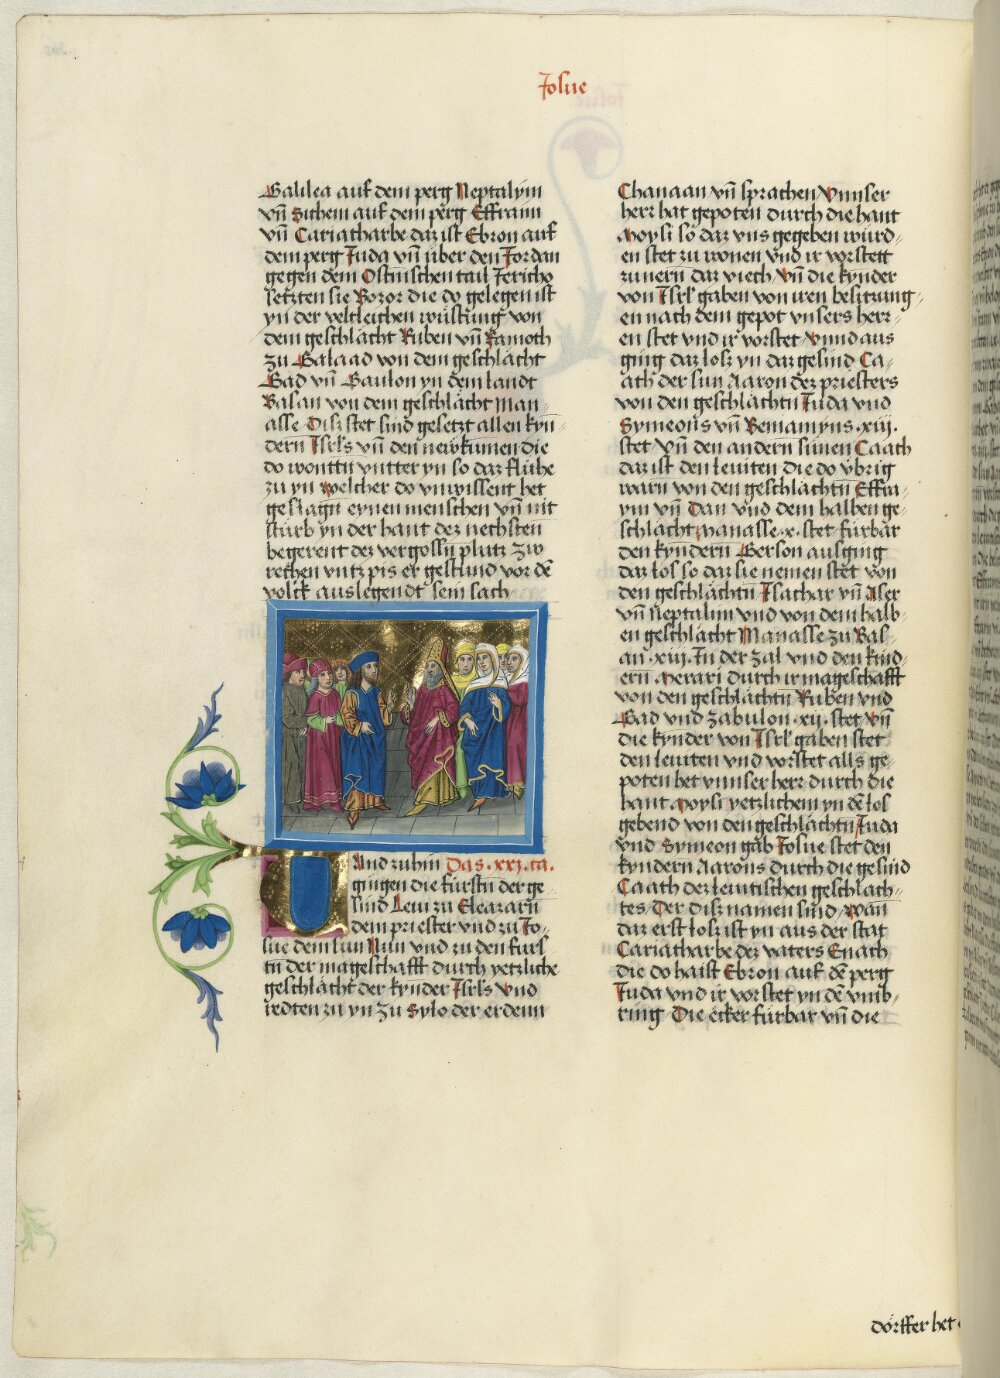 Josue
Galilea auf dem perg Neptalym
vn̄ Sichem auf dem perg Effraim
vn̄ Cariatharbe daz ist Ebron auf
dem perg Juda vn̄ über den Jordan
gegen dem Ostnischen tail Jericho
setzten sie Bozor die do gelegen ist
yn der veltleichen wüstung von
dem geschlächt Ruben vn̄ Ramoth
zu Galaad von dem geschlächt
Gad vn̄ Gaulon yn dem landt
Basan von dem geschlächt Man-
asse Disz stet sind gesetzt allen kyn-
dern Isrls vn̄ den newkumen die
do wontn̄ vntter yn so daz fluhe
zu yn welcher do vnwissent het
geslagn̄ eynen menschen vn̄ nit
stürb yn der hant dez nechsten
begerent dez vergossn̄ plutz zw
rechen vntz pis er gestünd vor dē
volck auslegendt sein sach
Und zuhin Das .xxj. ca.
gingen die fürstn̄ der ge-
sind Leui zu Eleazarn̄
dem priester vnd zu Jo-
sue dem sun Nun vnd zu den fürs
tn̄ der mageschafft durch yetzliche
geschlächt der kynder Isrls vnd
redten zu yn zu Sylo der erdenn
Chanaan vn̄ sprachen Vnnser
herr hat gepoten durch die hant
Moysi so daz vns gegeben würd-
en stet zu wonen vnd ir vorstett
zu nern daz viech Vn̄ die kynder
von Isrl gaben von iren besitzung-
en nach dem gepot vnsers herr-
en stet vnd ir vorstet Vnnd aus
ging daz losz yn daz gesind Ca-
ath der sun Aaron dez priesters
von den geschlächtn̄ Juda vnd
Symeons vn̄ Beniamyns .xiij.
stet Vn̄ den andern sünen Caath
daz ist den leuiten die do vbrig
warn von den geschlächtn̄ Effra-
ym vn̄ Dan vnd dem halben ge-
schlächt Manasse .x. stet fürbar
den kyndern Gerson ausging
daz los so daz sie nemen stet von
den geschlächtn̄ Isachar vn̄ Aser
vn̄ Neptalim vnd von dem halb-
en geschlächt Manasse zu Bas-
an .xiij. In der zal vnd den kind-
ern Merari durch ir mageschafft
von den geschlächtn̄ Ruben vnd
Gad vnd Zabulon .xij. stet Vn̄
die kynder von Isrl gaben stet
den leuiten vnd vorstet alls ge-
poten het vnnser herr durch die
hant Moysi yetzlichem yn dē los
gebend von den geschlächtn̄ Juda
vnd Symeon gab Josue stet den
kyndern Aarons durch die gesind
Caath dez leuitischen geschläch-
tes Der disz namen sind Wan̄
daz erst losz ist yn aus der stat
Cariatharbe dez vaters Enach
die do haist Ebron auf dē perg
Juda vnd ir vorstet yn dē vmb-
ring Die ecker fürbar vn̄ die
dörffer het